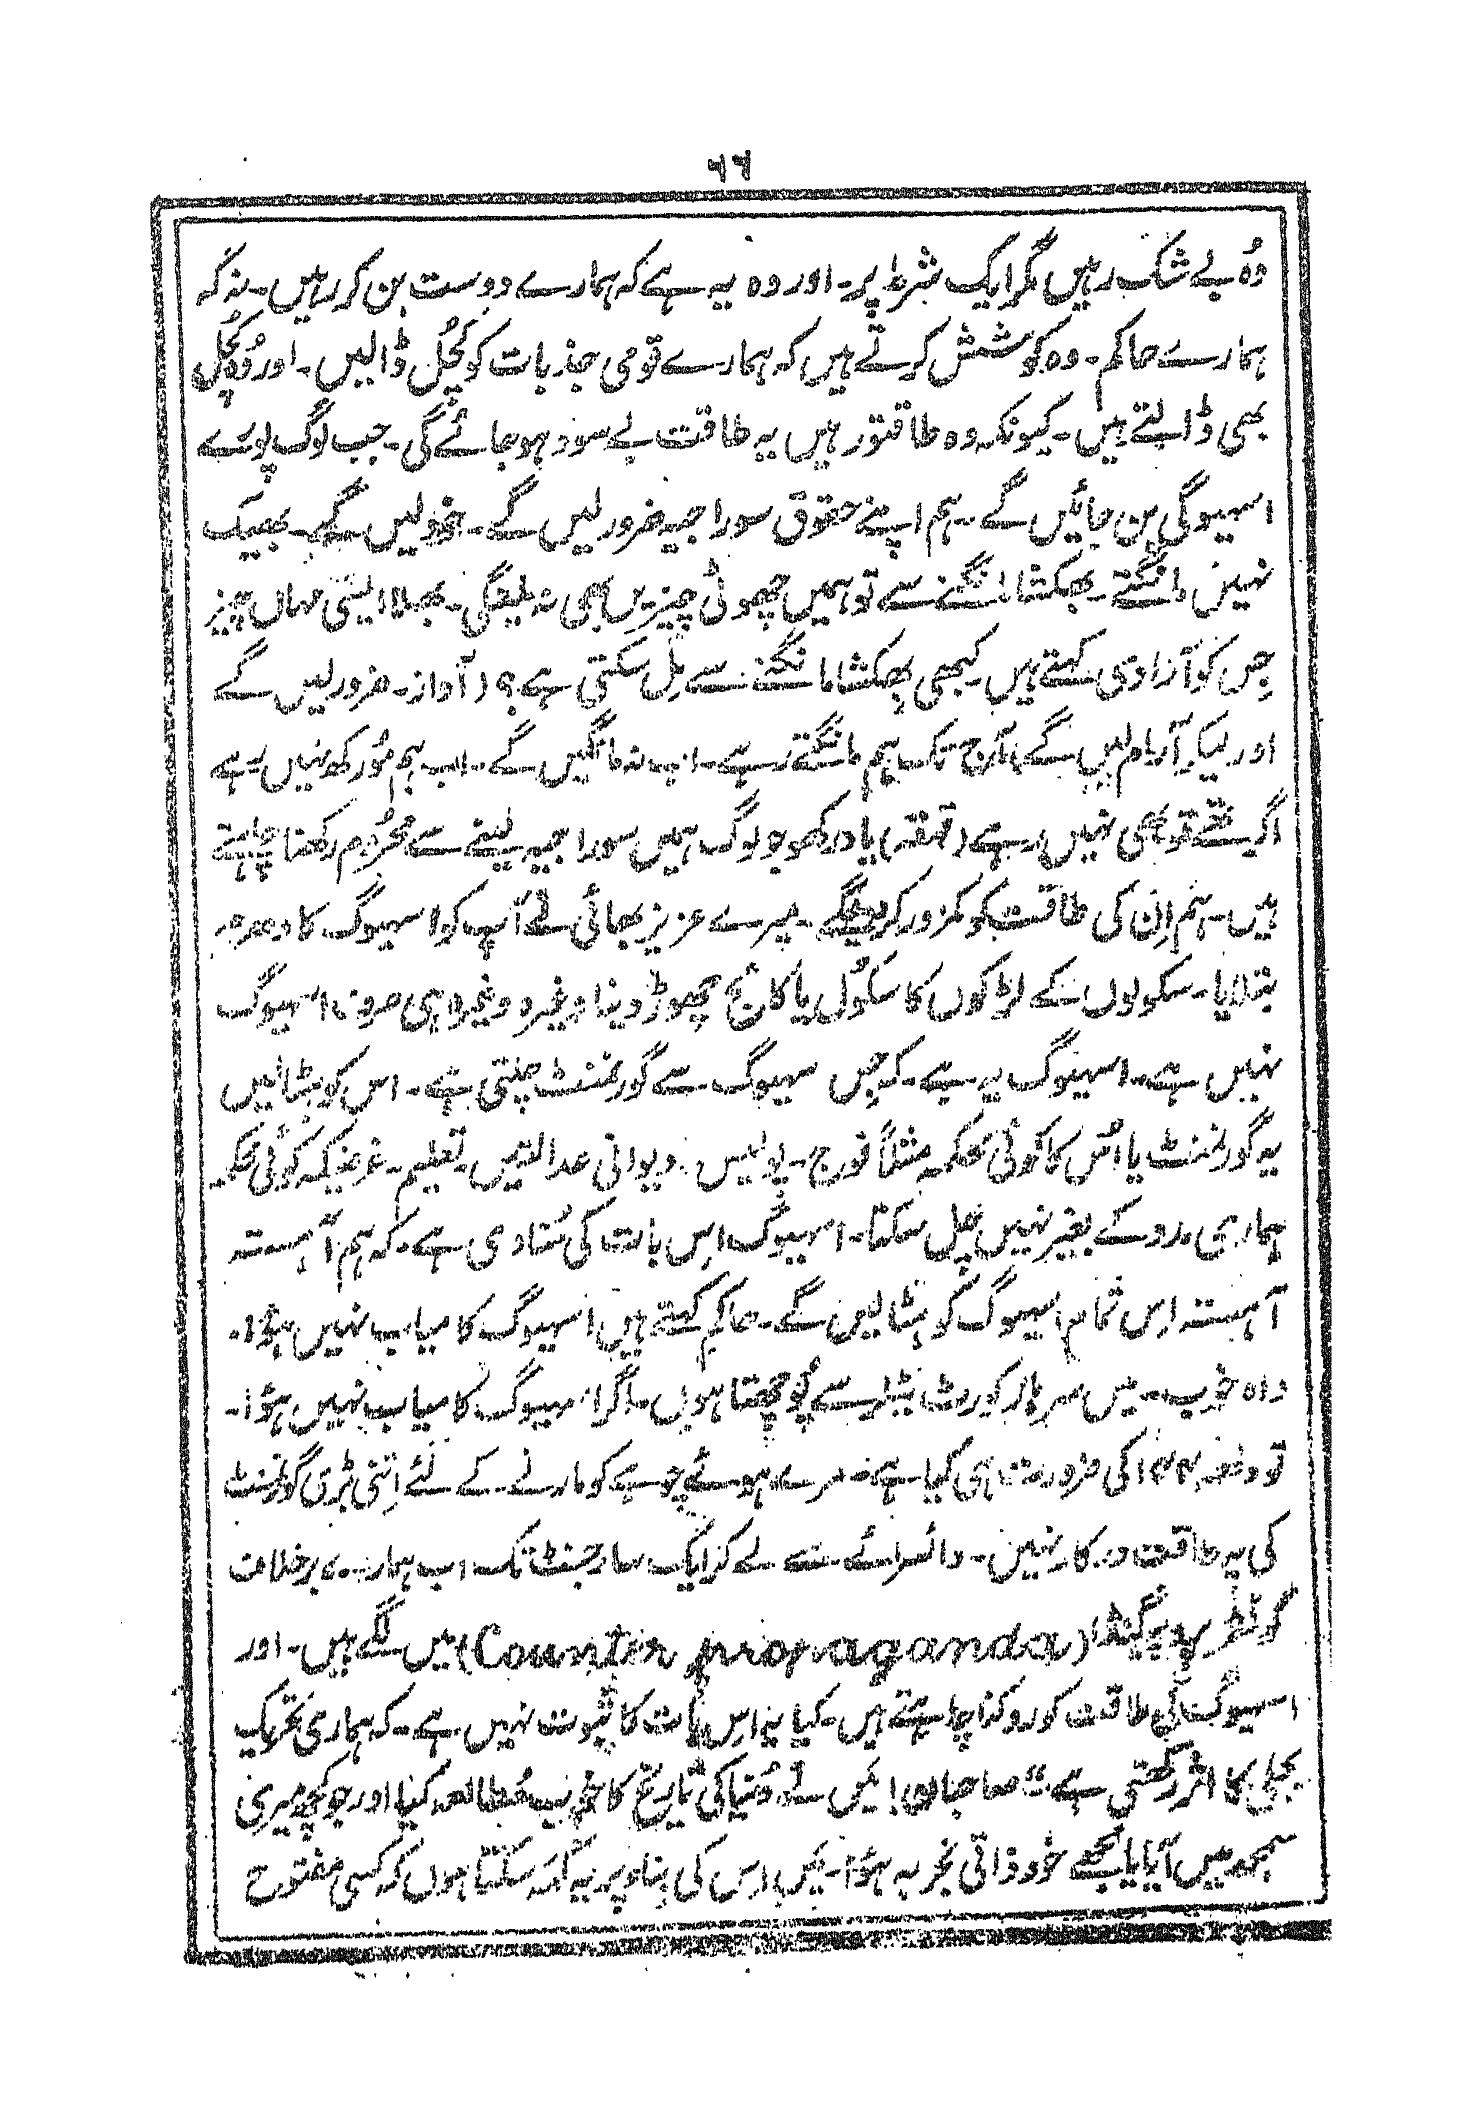 ۶۶
وُہ بے شک رہیں مگر ایک شرط پر۔ اور وہ یہ ہے کہ ہمارے دوست بن کر رہیں۔ نہ کہ
ہمارے حاکم۔ وہ کوشش کرتے ہیں کہ ہمارے قومی جذبات کو کُچل ڈالیں۔ اور وُہ کُچل
بھی ڈالتے ہیں۔ کیونکہ وہ طاقتور ہیں یہ طاقت بے سود ہو جائے گی۔ جب لوگ پورے
اسہیوگی بن جائیں گے۔ ہم اپنے حقوق سوراجیہ ضرور لیں گے۔ خود لیں گے۔ بھیک
نہیں مانگتے۔ بھکشا مانگنے سے تو ہمیں چھوٹی چیزیں بھی نہ ملیں گی۔ بھلا ایسی مہاں چیز
جِس کو آزادی کہتے ہیں۔ کبھی بھکشا مانگنے سے مِل سکتی ہے؟ (آواز۔ ضرور لیں گے
اور لیکر آرام لیں گے) آج تک ہم مانگتے رہے۔ اب نہ مانگیں گے۔ اب ہم مُورکھ نہیں رہے
اگر تھے تو بھی نہیں رہے (قہقہہ) یاد رکھو جو لوگ ہمیں سوراجیہ لینے سے محرُوم رکھنا چاہتے
ہیں۔ ہم اِن کی طاقت کو کمزور کر دینگے۔ میرے عزیز بھائی نے آپ کو اسہیوگ کا دھرم
بتلایا۔ سکولوں کے لڑکوں کا سکُول یا کالج چھوڑ دینا وغیرہ وغیرہ ہی صرف اسہیوگ
نہیں ہے۔ اسہیوگ یہ ہے۔ کہ جِس سہیوگ سے گورنمنٹ چلتی ہے۔ اس کو ہٹا لیں
یہ گورنمنٹ یا اُس کا کوئی محکمہ مثلاً فوج۔ پولیس۔ دیوانی عدالتیں۔ تعلیم۔ غرضیکہ کوئی محکمہ
ہماری مدد کے بغیر نہیں چل سکتا۔ اسہیوگ اِس بات کی مُنادی ہے۔ کہ ہم آہستہ
آہستہ اِس تمام اسہیوگ کو ہٹا لیں گے۔ حاکم کہتے ہیں اسہیوگ کامیاب نہیں ہؤا۔
واہ خوب۔ میں سر ہارکورٹ بٹلر سے پُوچھتا ہوں۔ اگر اسہیوگ کامیاب نہیں ہؤا۔
تو دفعہ ۱۴۴ کی ضرورت ہی کیا ہے۔ مرے ہوئے چوہے کو مارنے کے لئے اِتنی بڑی گورنمنٹ
کی یہ طاقت درکار نہیں۔ وائسرائے سے لے کر ایک سارجنٹ تک اب ہمارے برخلاف
کونٹر پروپیگنڈا (Counter propaganda) میں لگے ہیں۔ اور
اسہیوگ کی طاقت کو روکنا چاہتے ہیں۔ کیا یہ اِس بات کا ثبوت نہیں ہے۔ کہ ہماری تحریک
بجلی کا اثر رکھتی ہے۔ صاحبان! میں نے دُنیا کی تاریخ کا خوب مُطالعہ کیا اور جو کچھ میری
سمجھ میں آیا یا مجھے خود ذاتی تجربہ ہؤا۔ میں اس کی بناء پر یہ کہہ سکتا ہوں کہ کسی مفتوح